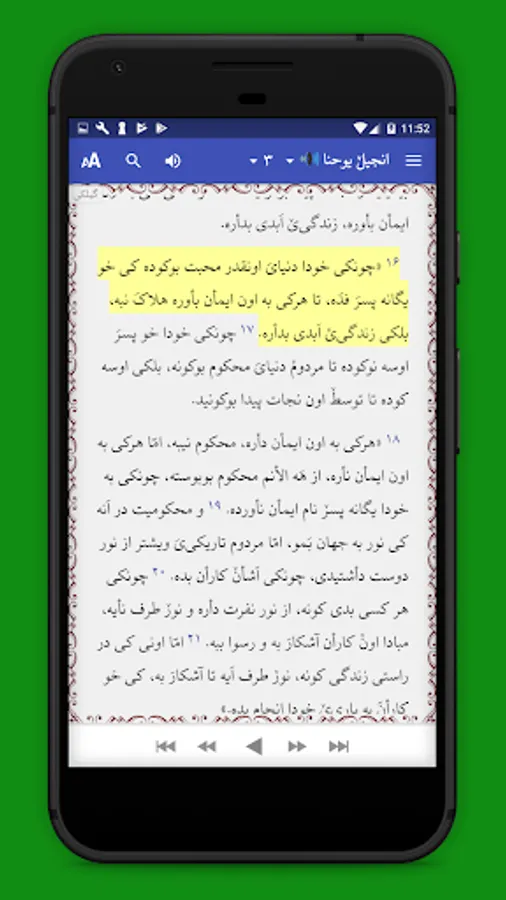 11:52
انجیلˇ یوحنا ۳ AA
گیلکی
ایمأن بأوره، زندگیٚ اَبدی بدأره.
۱۶ «چونکی خودا دنیایَ اونقدر محبت بوکوده کی خو
یگانه پسرَ فدَه، تا هرکی به اون ایمأن بأوره هلاکَ نبه،
بلکی زندگیٚ اَبدی بدأره. ۱۷ چونکی خودا خو پسرَ
اوسه نوکوده تا مردومٚ دنیایَ محکوم بوکونه، بلکی اوسه
کوده تا توسطٚ اون نجات پیدا بوکونید.
۱۸ «هرکی به اون ایمأن دأره، محکوم نیبه، امّا هرکی به
اون ایمأن نأره، از هَه الأنم محکوم بوبوسته، چونکی به
خودا یگانه پسرٚ نام ایمأن نأورده. ۱۹ و محکومیت در اَنه
کی نور به جهان بَمو، امّا مردوم تاریکیَ ویشتر از نور
دوست دأشتیدی، چونکی اَشأنٚ کارأن بده. ۲۰ چونکی
هر کسی بدی کونه، از نور نفرت دأره و نورٚ طرف نأیه،
مبادا اونٚ کارأن آشکارَ به و رسوا ببه. ۲۱ امّا اونی کی در
راستی زندگی کونه، نورٚ طرف اَیه تا آشکارَ به، کی خو
کارأنَ به یاریٚ خودا انجام بده.»